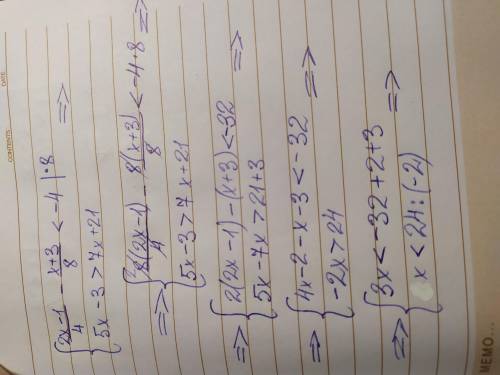 CONTENTS
DATE
{ (2x-1)/4 - (x+3)/8 < -4 |·8
{ 5x-3 > 7x+21 =>
=> { 8(2x-1)/4 - 8(x+3)/8 < -4·8 =>
{ 5x-3 > 7x+21
=> { 2(2x-1)-(x+3) < -32 =>
{ 5x-7x > 21+3
=> { 4x-2-x-3 < -32 =>
{ -2x > 24
=> { 3x < -32+2+3 =>
{ x < 24:(-2)
MEMO...